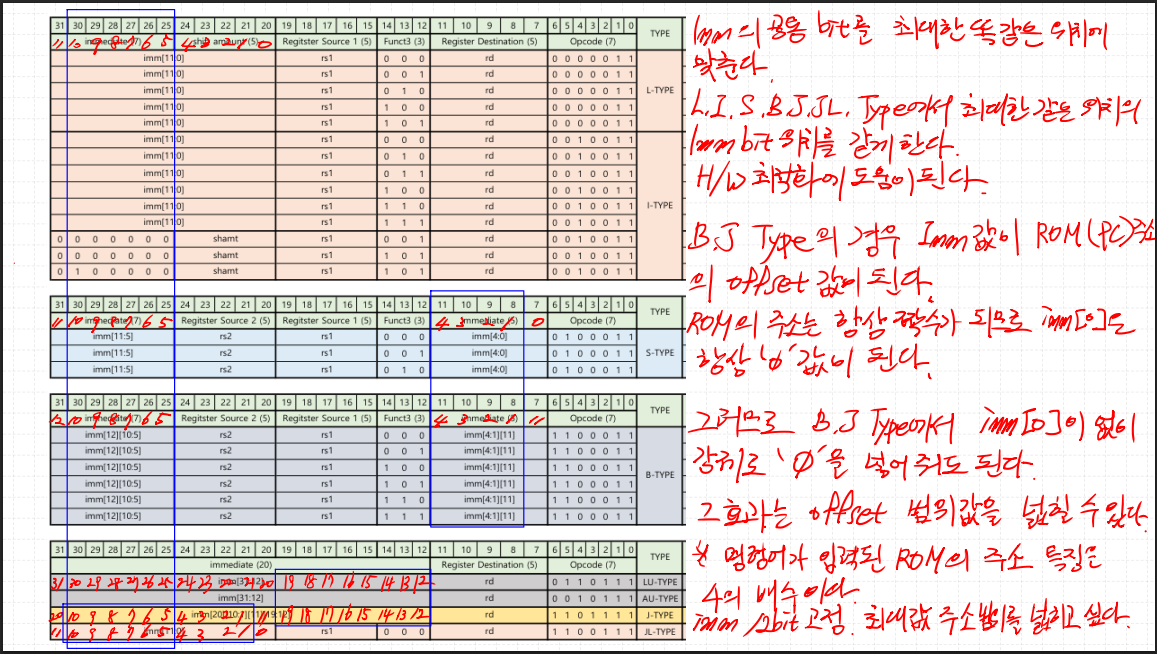 31 30 29 28 27 26 25 24 23 22 21 20 19 18 17 16 15 14 13 12 11 10 9 8 7 6 5 4 3 2 1 0 TYPE
immediate (7) shift amount (5) Regitster Source 1 (5) Funct3 (3) Register Destination (5) Opcode (7)
11 10 9 8 7 6 5 4 3 2 1 0
imm[11:0] rs1 0 0 0 rd 0 0 0 0 0 1 1
imm[11:0] rs1 0 0 1 rd 0 0 0 0 0 1 1
imm[11:0] rs1 0 1 0 rd 0 0 0 0 0 1 1 L-TYPE
imm[11:0] rs1 1 0 0 rd 0 0 0 0 0 1 1
imm[11:0] rs1 1 0 1 rd 0 0 0 0 0 1 1
imm[11:0] rs1 0 0 0 rd 0 0 1 0 0 1 1
imm[11:0] rs1 0 1 0 rd 0 0 1 0 0 1 1
imm[11:0] rs1 0 1 1 rd 0 0 1 0 0 1 1
imm[11:0] rs1 1 0 0 rd 0 0 1 0 0 1 1
imm[11:0] rs1 1 1 0 rd 0 0 1 0 0 1 1 I-TYPE
imm[11:0] rs1 1 1 1 rd 0 0 1 0 0 1 1
0 0 0 0 0 0 0 shamt rs1 0 0 1 rd 0 0 1 0 0 1 1
0 0 0 0 0 0 0 shamt rs1 1 0 1 rd 0 0 1 0 0 1 1
0 1 0 0 0 0 0 shamt rs1 1 0 1 rd 0 0 1 0 0 1 1
31 30 29 28 27 26 25 24 23 22 21 20 19 18 17 16 15 14 13 12 11 10 9 8 7 6 5 4 3 2 1 0 TYPE
immediate (7) Regitster Source 2 (5) Regitster Source 1 (5) Funct3 (3) immediate (5) Opcode (7)
11 10 9 8 7 6 5 4 3 2 1 0
imm[11:5] rs2 rs1 0 0 0 imm[4:0] 0 1 0 0 0 1 1
imm[11:5] rs2 rs1 0 0 1 imm[4:0] 0 1 0 0 0 1 1 S-TYPE
imm[11:5] rs2 rs1 0 1 0 imm[4:0] 0 1 0 0 0 1 1
31 30 29 28 27 26 25 24 23 22 21 20 19 18 17 16 15 14 13 12 11 10 9 8 7 6 5 4 3 2 1 0 TYPE
immediate (7) Regitster Source 2 (5) Regitster Source 1 (5) Funct3 (3) immediate (5) Opcode (7)
12 10 9 8 7 6 5 4 3 2 1 11
imm[12][10:5] rs2 rs1 0 0 0 imm[4:1][11] 1 1 0 0 0 1 1
imm[12][10:5] rs2 rs1 0 0 1 imm[4:1][11] 1 1 0 0 0 1 1
imm[12][10:5] rs2 rs1 1 0 0 imm[4:1][11] 1 1 0 0 0 1 1 B-TYPE
imm[12][10:5] rs2 rs1 1 0 1 imm[4:1][11] 1 1 0 0 0 1 1
imm[12][10:5] rs2 rs1 1 1 0 imm[4:1][11] 1 1 0 0 0 1 1
imm[12][10:5] rs2 rs1 1 1 1 imm[4:1][11] 1 1 0 0 0 1 1
31 30 29 28 27 26 25 24 23 22 21 20 19 18 17 16 15 14 13 12 11 10 9 8 7 6 5 4 3 2 1 0 TYPE
immediate (20) Register Destination (5) Opcode (7)
31 30 29 28 27 26 25 24 23 22 21 20 19 18 17 16 15 14 13 12
imm[31:12] rd 0 1 1 0 1 1 1 LU-TYPE
imm[31:12] rd 0 0 1 0 1 1 1 AU-TYPE
20 10 9 8 7 6 5 4 3 2 1 11 19 18 17 16 15 14 13 12
imm[20][10:1][11][19:12] rd 1 1 0 1 1 1 1 J-TYPE
11 10 9 8 7 6 5 4 3 2 1 0
imm[11:0] rs1 0 0 0 rd 1 1 0 0 1 1 1 JL-TYPE
Imm의 공통 bit를 최대한 똑같은 위치에
맞춘다.
L.I.S.B.J.JL. Type에서 최대한 같은 위치의
Imm bit 위치를 같게 한다.
H/W 최적화에 도움이 된다.
B.J Type의 경우 Imm값이 ROM(PC)주소
의 offset 값이 된다.
ROM의 주소는 항상 짝수가 되므로 imm[0]은
항상 'φ' 값이 된다.
그러므로 B.J Type에서 imm[0]이 없이
강제로 'φ'을 넣어 줘도 된다.
그 효과는 offset 범위값을 넓힐 수 있다.
* 명령어가 입력된 ROM의 주소 특징은
4의 배수이다.
imm 12bit 고정. 최대값 주소범위를 넓히고 싶다.